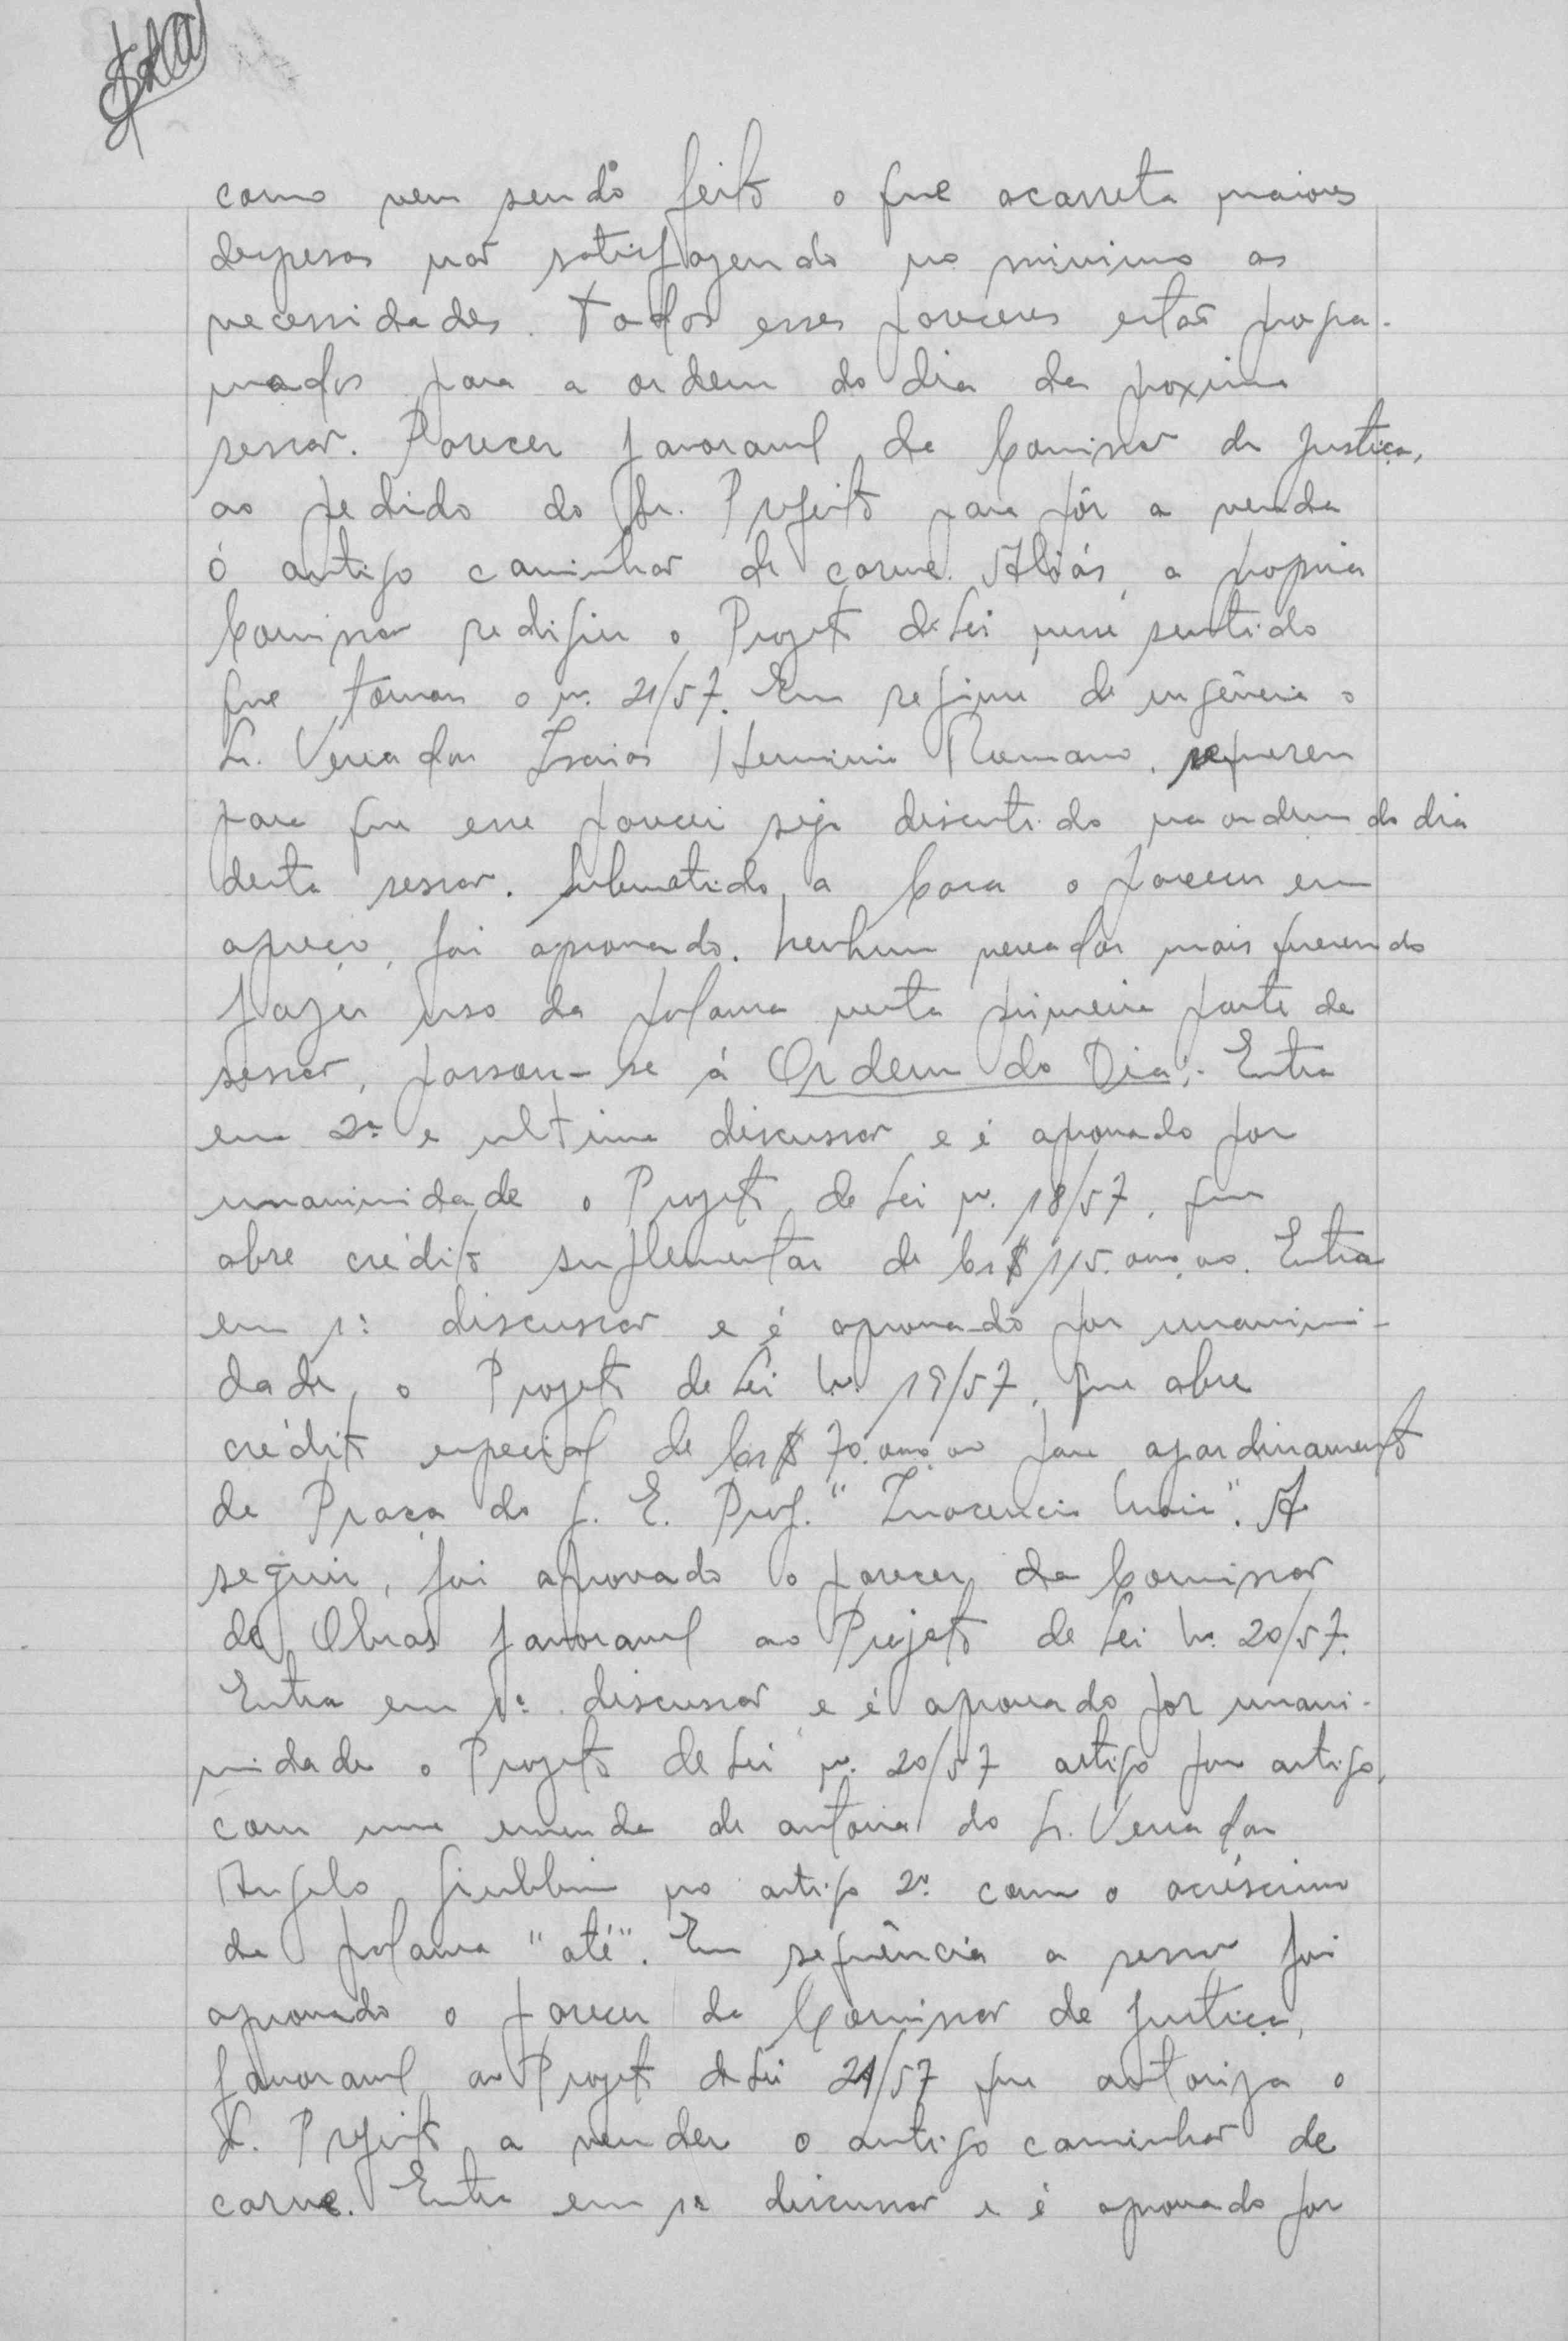 como vem sendo feito o que acarreta maiores
despesas não satisfazendo no minimo as
necessidades. Todos esses pareceres estão progra-
mados para a ordem do dia da proxima
sessão. Parecer favoravel da Comissão de Justiça,
ao pedido do Sr. Prefeito para pôr a venda
o antigo caminhão de carne. Aliás, a propria
Comissão redigiu o Projeto de Lei nesse sentido
que tomou o n. 21/57. Em regime de urgência o
Sr. Vereador Isaias Herminio Romano, requereu
para que esse parecer seja discutido na ordem do dia
desta sessão. Submetido a Casa o parecer em
apreço, foi aprovado. Nenhum vereador mais querendo
fazer uso da palavra nesta primeira parte da
sessão, passou-se á Ordem do Dia:- Entra
em 2ª e ultima discussão e é aprovado por
unanimidade o Projeto de Lei n. 18/57, que
abre crédito suplementar de Cr$ 115.000,00. Entra
em 1ª discussão e é aprovado por unanimi-
dade, o Projeto de Lei N. 19/57, que abre
crédito especial de Cr$ 70.000,00 para ajardinamento
da Praça do G. E. Prof. "Inocencio Maia". A
seguir, foi aprovado o parecer da Comissão
de Obras favoravel ao Projeto de Lei N. 20/57.
Entra em 1ª discussão e é aprovado por unani-
midade o Projeto de Lei n. 20/57 artigo por artigo,
com uma emenda de autoria do Sr. Vereador
Angelo Giubbini no artigo 2º com o acréscimo
da palavra "até". Em sequência a sessão foi
aprovado o parecer da Comissão de Justiça,
favoravel ao Projeto de Lei 21/57 que autoriza o
Sr. Prefeito a vender o antigo caminhão de
carne. Entra em 1ª discussão e é aprovado por